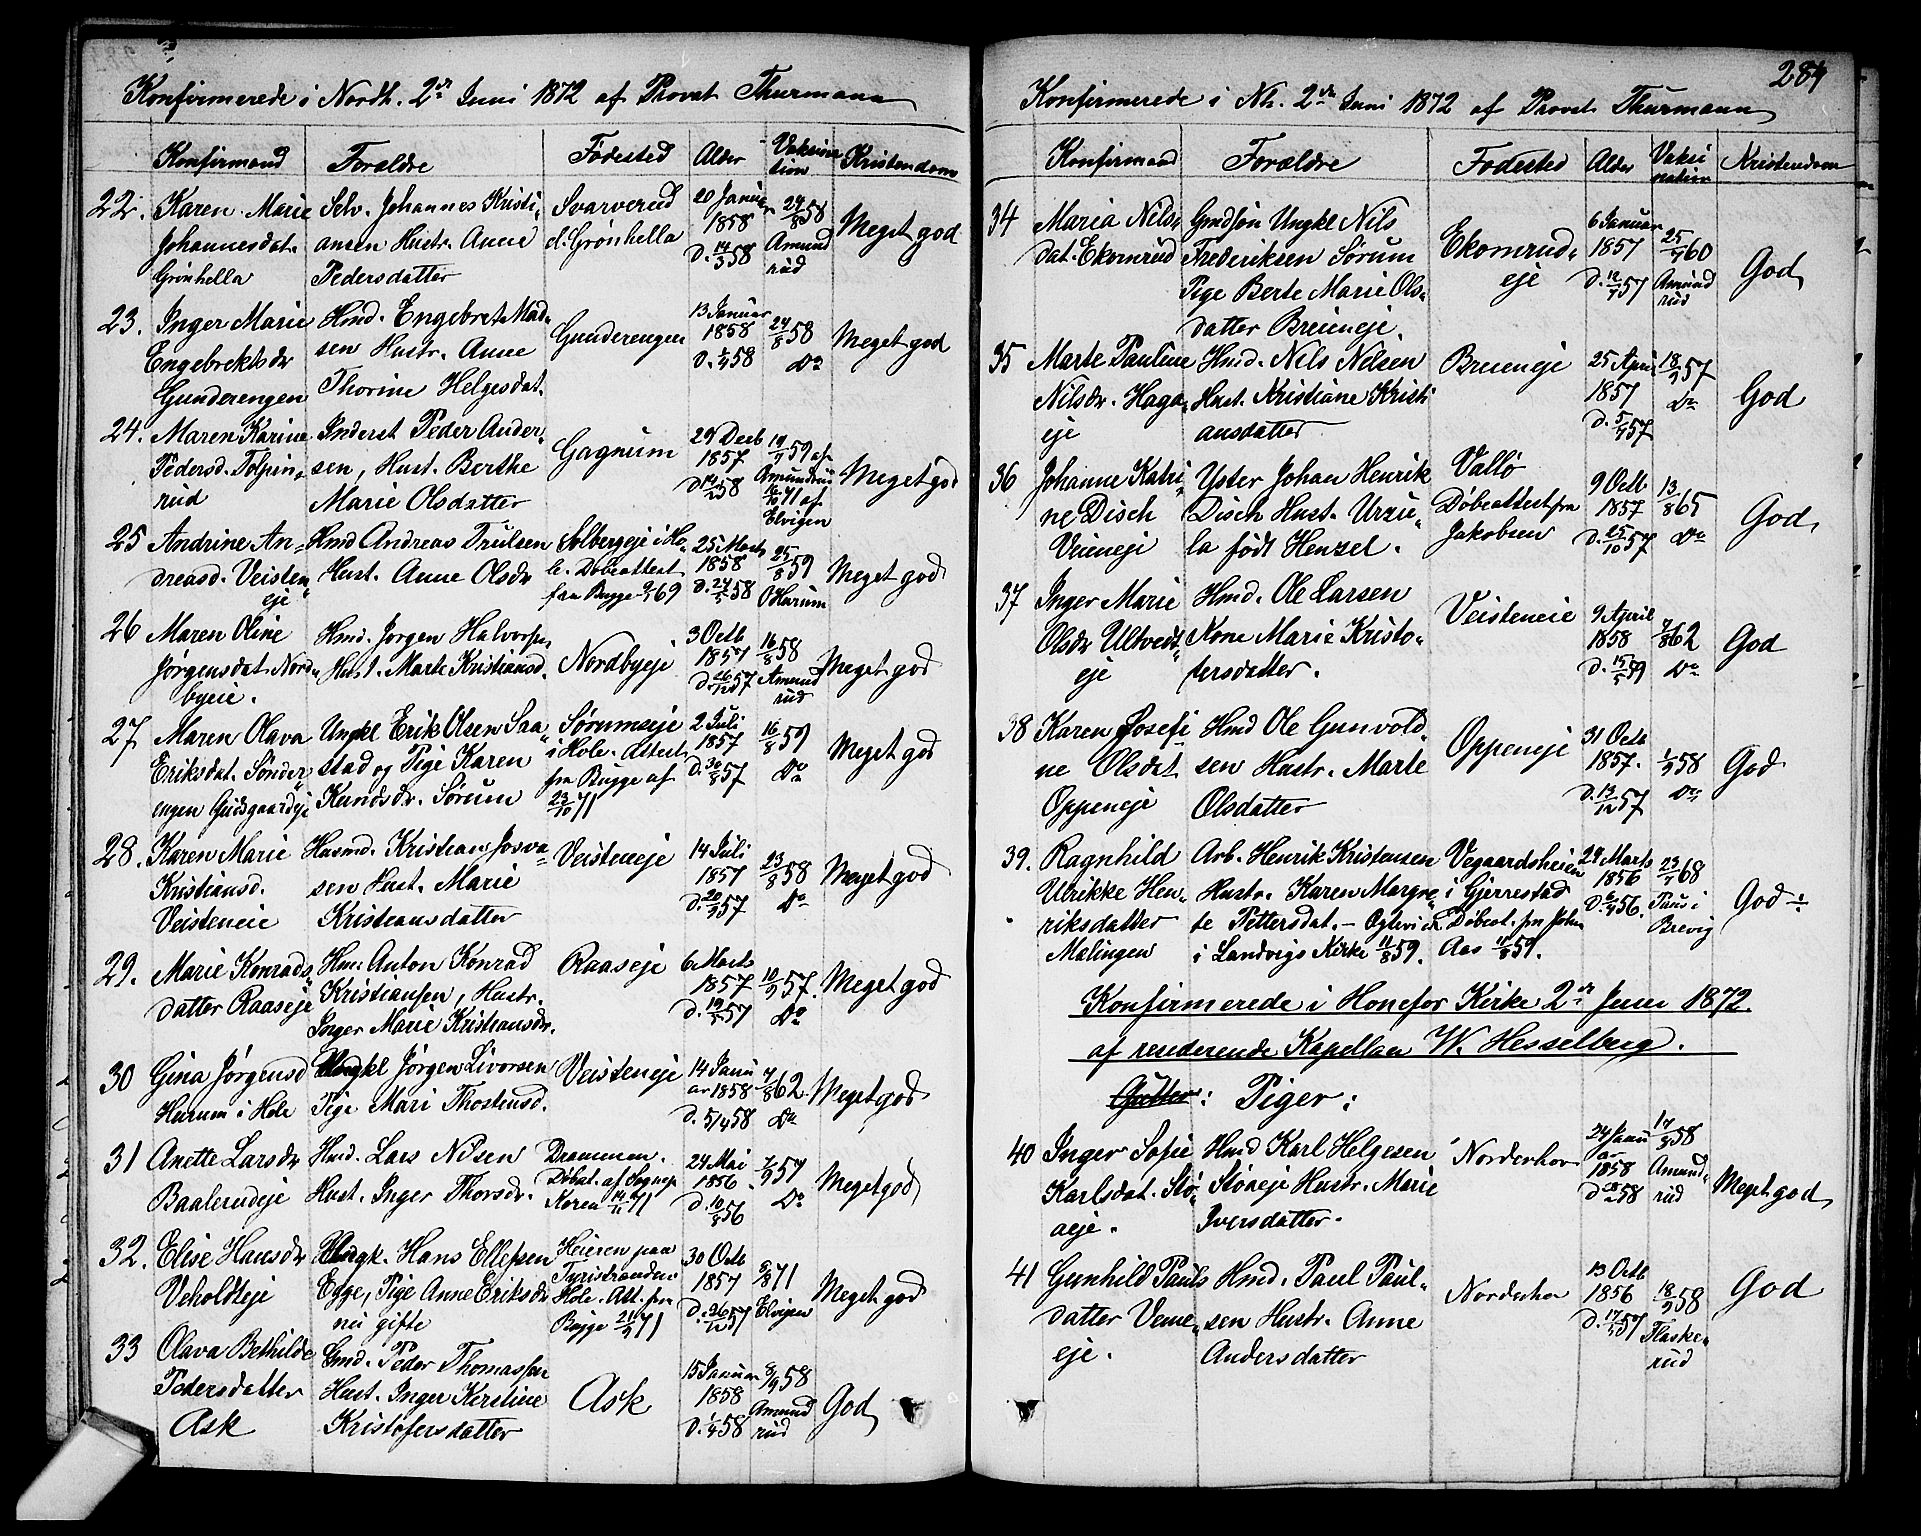 Konfirmerede i Nordh. 2den Juni 1872 af Provst Thurmann
Konfirmand Forældre Födested Alder Vaksination Kristendom
22. Karen Marie Johannesdat. Grönhella
Selv. Johannes Kristiansen Hustr. Anne Pedersdatter
Svarverud d. Grönhella
20 Januar 1858 D. 14/3 58
24/8 58 Amundrud
Meget god
23. Inger Marie Engebrektsdr Gunderengen
Hmd. Engebret Madsen Hustr. Anne Thorine Helgesdat.
Gunderengen
13 Januar 1858 D. 1/4 58
24/8 58 Do
Meget god
24. Maren Karine Pedersd. Tolpinrud
Inderst Peder Andersen, Hust. Berthe Marie Olsdatter
Gagnum
29 Decb 1857
19/9 59 af Amundrud 16/10 71 af Elvigen
Meget god
25 Andrine Andreasd. Veisteneje
Hmd Andreas Trulsen Hust. Anne Olsdr
Solbergeje i Hole. Döbeattest fra Bugge 69
25 Marts 1858 D. 24/5 58
25/8 59 O Harum
Meget god
26 Maren Oline Jörgensdat. Nordbyeie.
Hmd. Jörgen Halvorsen Hust. Marte Kristiansd.
Nordbyeje
3 Octb 1857 D. 26/12 57
16/8 58 Amundrud
Meget god
27 Maren Olava Eriksdat. Sönderengen Gudsgaardeje
Ungkl Erik Olsen Saastad og Pige Karen Knudsdr. Sörum
Sörumseje i Hole. Attest fra Bugge af 23/10 71
2 Juli 1857 D. 30/8 57
16/8 59 Do
Meget god
28. Karen Marie Kristiansd. Veisteneie
Husmd. Kristian Josvasen Hust. Marie Kristiansdatter
Veisteneje
14 Juli 1857 D. 20/9 57
23/8 58 Do
Meget god
29. Marie Konradsdatter Raaseje
Hm. Anton Konrad Kristiansen, Hustr. Inger Marie Kristiansdr.
Raaseje
6 Marts 1857 D. 19/5 57
10/9 57. Do
Meget god
30 Gina Jörgensd Harum i Hole
Ungkl Jörgen Livorsen Pige Mari Thostensd.
Veisteneje
14 Januar 1858 D. 5/4 58
7/8 62. Do
Meget god
31 Anette Larsdr Baalerudeje
Hmd. Lars Nilsen Hust. Inger Thorsdr.
Drammen. Döbat. af Sognep. Koren 14/11 71
24 Mai 1856. D. 10/8 56
7/9 57 Do
Meget god
32. Elise Hansdr Veholdteje
Ungk. Hans Ellefsen Egge, Pige Anne Eriksdr nu gifte
Heieren paa Tyristranden Hole. Att. fra Bugge 21/9 71
30 Octb 1857 D. 26/12 57
9/8 71 Elvigen
Meget god
33 Olava Bethilde Pedersdatter Ask
Gmd. Peder Thomassen Hust. Inger Kerstine Kristofersdatter
Ask
15 Januar 1858 D. 1/4 58
8/9 58 Amundrud
God
284
Konfirmerede i Nh. 2den Juni 1872 af Provst Thurmann
Konfirmand Forældre Födested Alder Vaksination Kristendom
34 Maria Nilsdat. Ekornrud
Gmdsön Ungkl Nils Frederiksen Sörum Pige Berte Marie Olsdatter Breieneje.
Ekornrudeje
6 Januar 1857 D. 12/4 57
25/7 60 Amundrud
God
35 Marte Pauline Nilsdr. Hagaeje
Hmd. Nils Nilsen Hust. Kristiane Kristiansdatter
Breieneje
25 April 1857 D. 5/7 57
18/9 57 Do
God
36 Johanne Katrine Disch Veieneje
Yster Johan Henrik Disch Hust. Urzula födt Henzel.
Vallö Döbeattest fra Jakobsen
9 Octb 1857 D. 25/10 57
13/8 65 Do
God
37 Inger Marie Olsdr Ultvedteje
Hmd. Ole Larsen Kone Marie Kristofersdatter.
Veisteneie
9 April 1858 D. 15/5 59
7/8 62 Do
God
38 Karen Josefine Olsdat Oppeneje
Hmd Ole Gunvoldsen Hustr. Marte Olsdatter
Oppeneje
31 Octb 1857. D. 13/12 57
1/9 58 Do
God
39. Ragnhild Ulrikke Henriksdatter Malingen
Arb. Henrik Kristensen Hustr. Karen Margrete Pettersdat. – i Landvigs Kirke 11/8 59.
Vegaardsheien i Gjerrestad Döbeat. fra John Aas 59.
29 Marts 1856 D. 6/4 56.
23/7 68 Paus i Brevig
God ÷
Konfirmerede i Hönefos Kirke 2den Juni 1872.
af residerende Kapellan W. Hesselberg.
Gutter: Piger:
40 Inger Sofie Karlsdat. Stöaeje.
Hmd Karl Helgesen Stöaeje Hustr. Marie Iversdatter.
Norderhov
24 Januar 1858
17/8 58 Amundrud
Meget god
41 Gunhild Paulsdatter Vemeeje.
Hmd. Paul Paulsen Hustr. Anne Andersdatter
Norderhov
13 Octb 1856 D. 17/5 57
18/9 58 Flaskerud
God